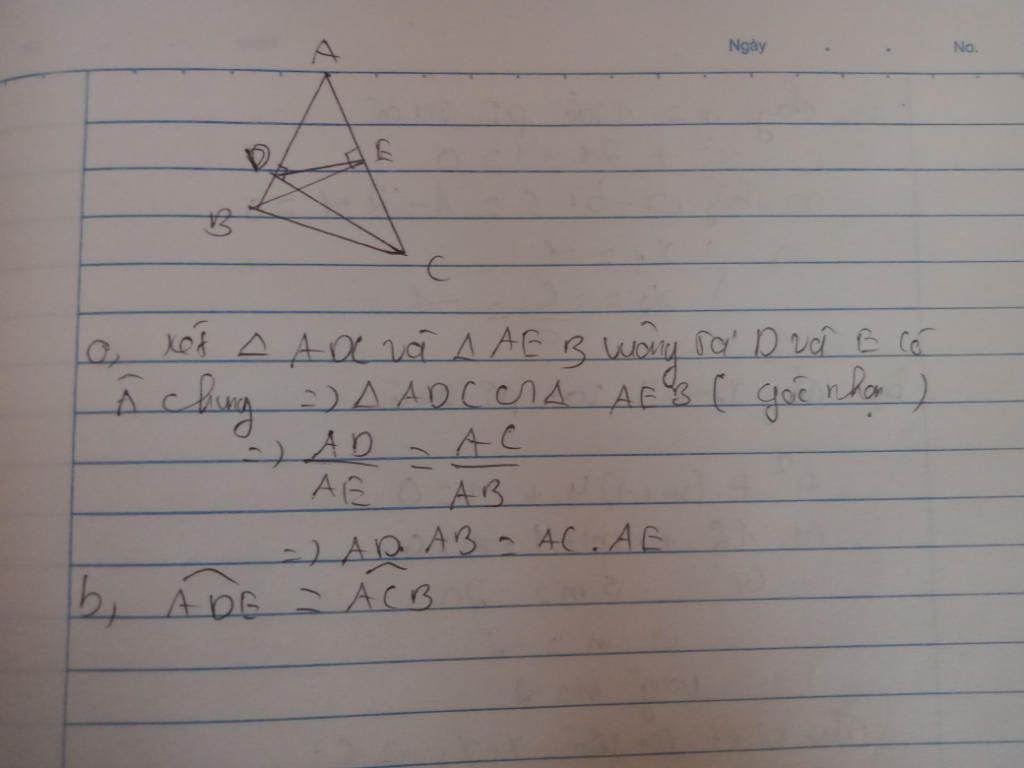 Ngày
No.
A
D
E
B
C
a, xét △ ADC và △ AEB vuông tại D và E có
Â chung => △ ADC ∽ △ AEB ( góc nhọn )
=> AD/AE = AC/AB
=> AD. AB = AC. AE
b, \widehat{ADE} = \widehat{ACB}